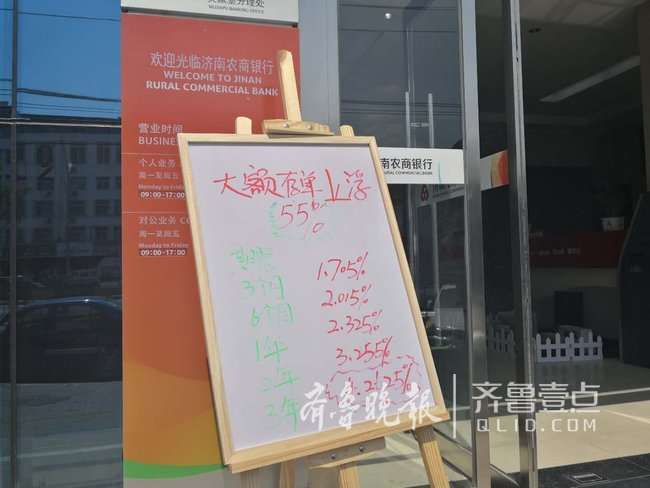 欢迎光临济南农商银行
WELCOME TO JINAN
RURAL COMMERCIAL BANK
营业时间
BUSINESS
个人业务
周一至周五
Monday to Friday
09:00-17:00
对公业务 CO
周一至周五
Monday to Friday
09:00-17:00
南农商银行
RURAL COMMERCIAL BANK
大额存单上浮
55%
期限
3个月 1.705%
6个月 2.015%
1年 2.325%
2年 3.255%
齐鲁晚报
齐鲁壹点
QLID.COM